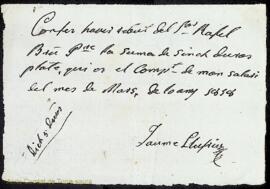 Confes haver rebut del Sor Rafel
Pre la suma de sinch duros
plata, qui es el Compt de mon salari
del mes de Mars, de lo any
Jaume
Dich 5 duros